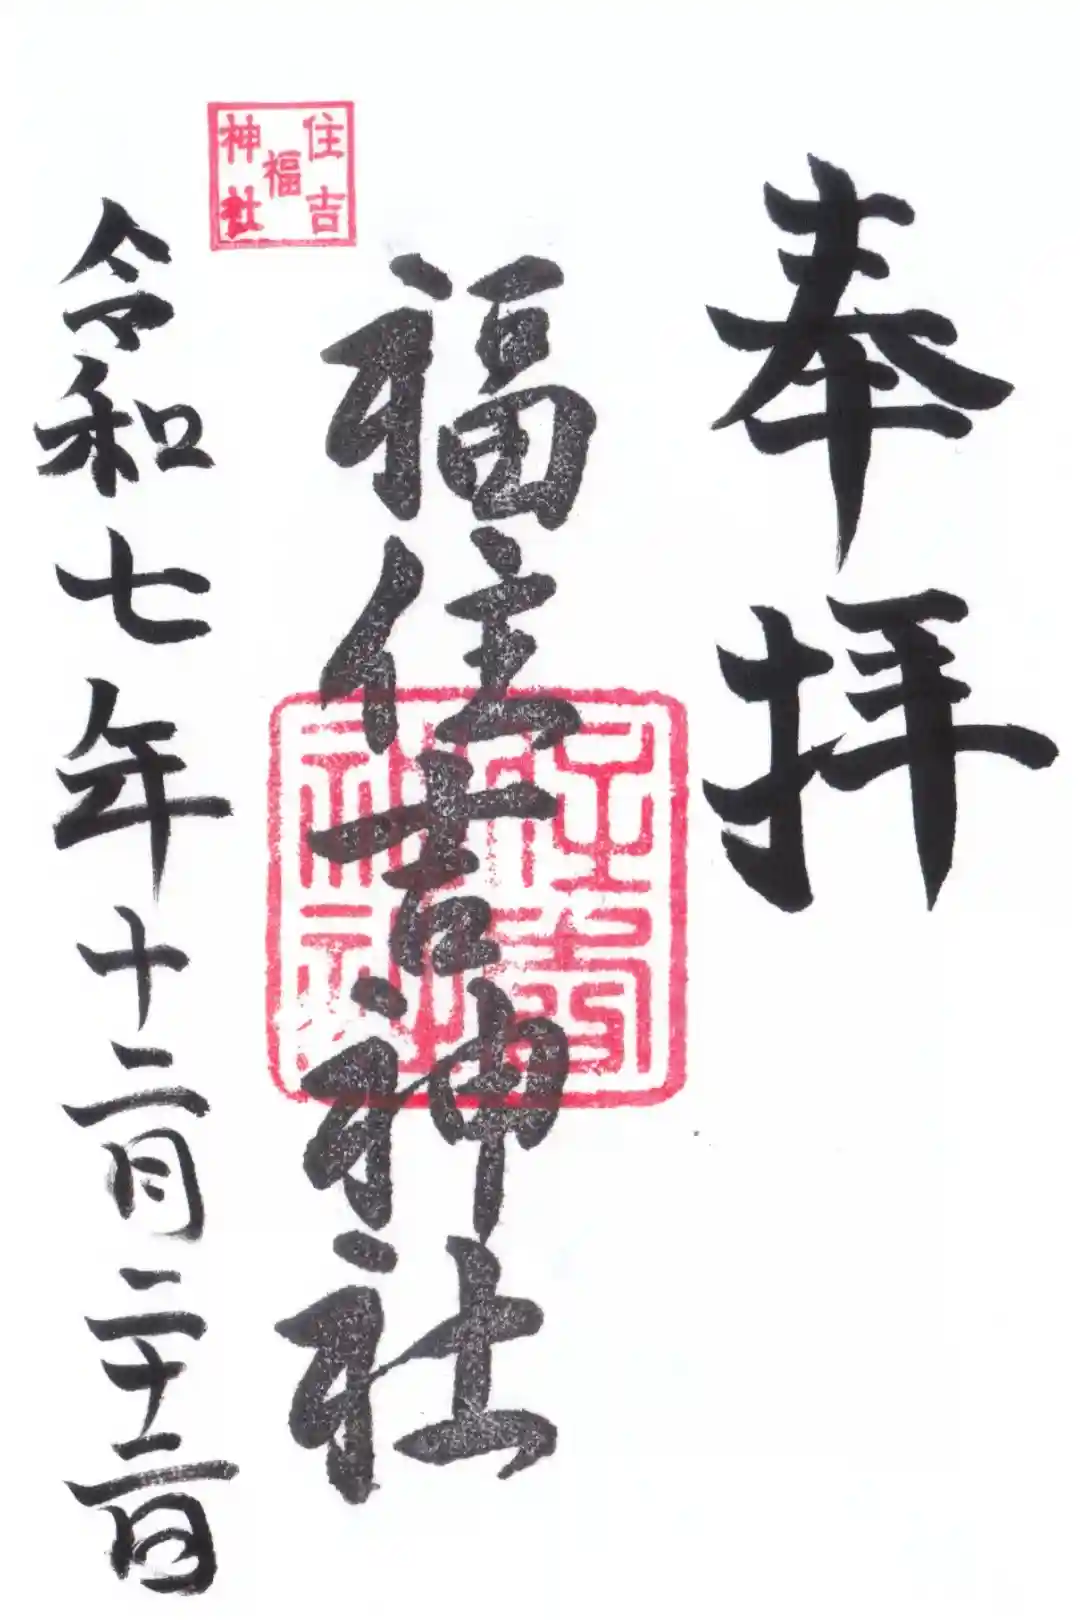 奉拝
住吉
福
神社
福住吉神社
住吉
神社
令和七年十二月二十二日